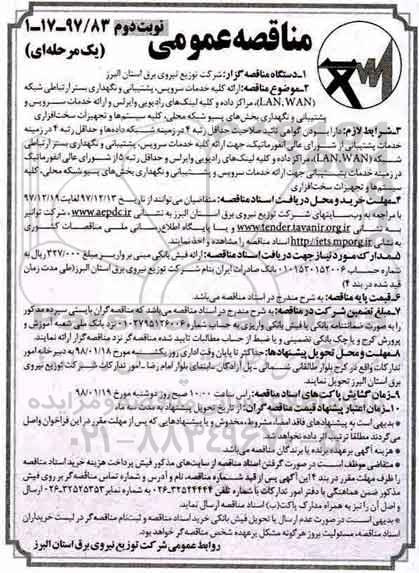 نوبت دوم ۹۷/۸۳-۱۷-۱
مناقصه عمومی
(یک مرحله‌ای)
۱-دستگاه مناقصه گزار: شرکت توزیع نیروی برق استان البرز
۲-موضوع مناقصه: ارائه کلیه خدمات سرویس، پشتیبانی و نگهداری بستر ارتباطی شبکه
(LAN,WAN)، مراکز داده و کلیه لینک‌های رادیویی وایرلس و ارائه خدمات سرویس و
پشتیبانی و نگهداری بخش‌های پسیو شبکه محلی، کلیه سیستم‌ها و تجهیزات سخت‌افزاری
۳-شرایط لازم: دارا بودن گواهی تائید صلاحیت حداقل رتبه ۴ در زمینه شبکه داده‌ها و حداقل رتبه ۴ در زمینه
خدمات پشتیبانی از شورای عالی انفورماتیک، جهت ارائه خدمات پشتیبانی و نگهداری بستر ارتباطی
شبکه (LAN,WAN)، مراکز داده و کلیه لینک‌های رادیویی وایرلس و حداقل رتبه ۵ از شورای عالی انفورماتیک
در زمینه خدمات پشتیبانی جهت ارائه خدمات سرویس و پشتیبانی و نگهداری بخش‌های پسیو شبکه محلی، کلیه
سیستم‌ها و تجهیزات سخت‌افزاری
۴-مهلت خرید و محل دریافت اسناد مناقصه: متقاضیان می‌توانند از تاریخ ۹۷/۱۲/۱۳ لغایت ۹۷/۱۲/۱۹
با مراجعه به وب‌سایتهای شرکت توزیع نیروی برق استان البرز به نشانی www.aepdc.ir، شرکت توانیر
به نشانی www.tender.tavanir.org.ir و یا پایگاه اطلاع‌رسانی ملی مناقصات کشوری
به نشانی http://iets.mporg.ir اسناد مناقصه را مشاهده و اخذ نمایند.
۵-مدارک مورد نیاز جهت دریافت اسناد مناقصه: ارائه فیش بانکی مبنی بر واریز مبلغ ۳۲۷/۰۰۰ ریال به
شماره حساب ۰۱۰۱۵۲۰۱۵۲۰۰۶ بانک صادرات ایران بنام شرکت توزیع نیروی برق استان البرز (طی مدت زمان
قید شده در بند ۴)
۶-قیمت پایه مناقصه: به شرح مندرج در اسناد مناقصه می‌باشد.
۷-مبلغ تضمین شرکت در مناقصه: به شرح مندرج در اسناد مناقصه می‌باشد که مناقصه‌گران بایستی سپرده مذکور
را به صورت ضمانتنامه بانکی یا فیش بانکی واریزی به حساب شماره ۰۱۰۲۷۹۵۱۲۶۰۰۶ نزد بانک ملی شعبه آموزش و
پرورش کرج و یا چک بانکی تضمینی و یا ضبط از حساب مطالبات تایید شده مناقصه‌گر نزد مناقصه‌گزار ارائه نمایند.
۸-مهلت و محل تحویل پیشنهادها: حداکثر تا پایان وقت اداری روز یکشنبه مورخ ۹۸/۰۱/۱۸ به دبیرخانه امور
تدارکات واقع در کرج بلوار طالقانی شمالی - پل آزادگان - ابتدای بلوار امام رضا - امور تدارکات شرکت توزیع نیروی
برق استان البرز تحویل نمایند.
۹-زمان گشایش پاکت‌های اسناد مناقصه: راس ساعت ۱۰:۰۰ صبح روز دوشنبه مورخ ۹۸/۰۱/۱۹
۱۰-زمان اعتبار پیشنهاد قیمت مناقصه گران: از تاریخ تحویل پیشنهاد به مدت سه ماه
* بدیهی است به پیشنهادهای فاقد امضا، مشروط، مخدوش و یا پیشنهادهایی که پس از مهلت مقرر در این فراخوان واصل
می‌گردند مطلقا ترتیب اثر داده نخواهد شد.
* هزینه آگهی برعهده برنده یا برندگان مناقصه می‌باشد.
* متقاضی موظف است در صورت گرفتن اسناد مناقصه از سایت‌های مذکور فیش پرداخت هزینه خرید اسناد مناقصه
را ظرف مهلت مقرر در بند ۴ این آگهی پس از قید شماره مناقصه، نام و آدرس و شماره تماس مناقصه‌گر بر روی فیش
مذکور ضمن هماهنگی با دفتر امور تدارکات با شماره تلفن ۳۲۵۲۴۴۴۴-۰۲۶ به شماره نمابر ۳۲۵۲۵۳۵۳-۰۲۶ ارسال
و اصل آن را نیز به همراه مدارک پاکت(ب) اسناد مناقصه ارسال نماید.
* بدیهی است در صورت عدم ارسال یا تحویل فیش بانکی خرید اسناد مناقصه و ثبت‌نام مناقصه‌گر در لیست خریداران
اسناد مناقصه، مسئولیت بروز هرگونه مشکل برعهده شخص مناقصه‌گر خواهد بود.
روابط عمومی شرکت توزیع نیروی برق استان البرز